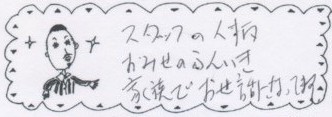 スタッフの人柄
おみせのふんいき
家族でお世話になってます